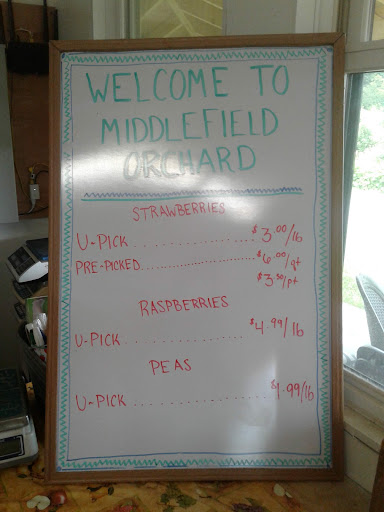 WELCOME TO
MIDDLEFIELD
ORCHARD
STRAWBERRIES
U-PICK . . . . . . . . . . . . . $3.00/lb
PRE-PICKED.................... $6.00/qt
$3.50/pt
RASPBERRIES
U-PICK . . . . . . . . . . . . . $4.99/lb
PEAS
U-PICK . . . . . . . . . . . . . $1.99/lb